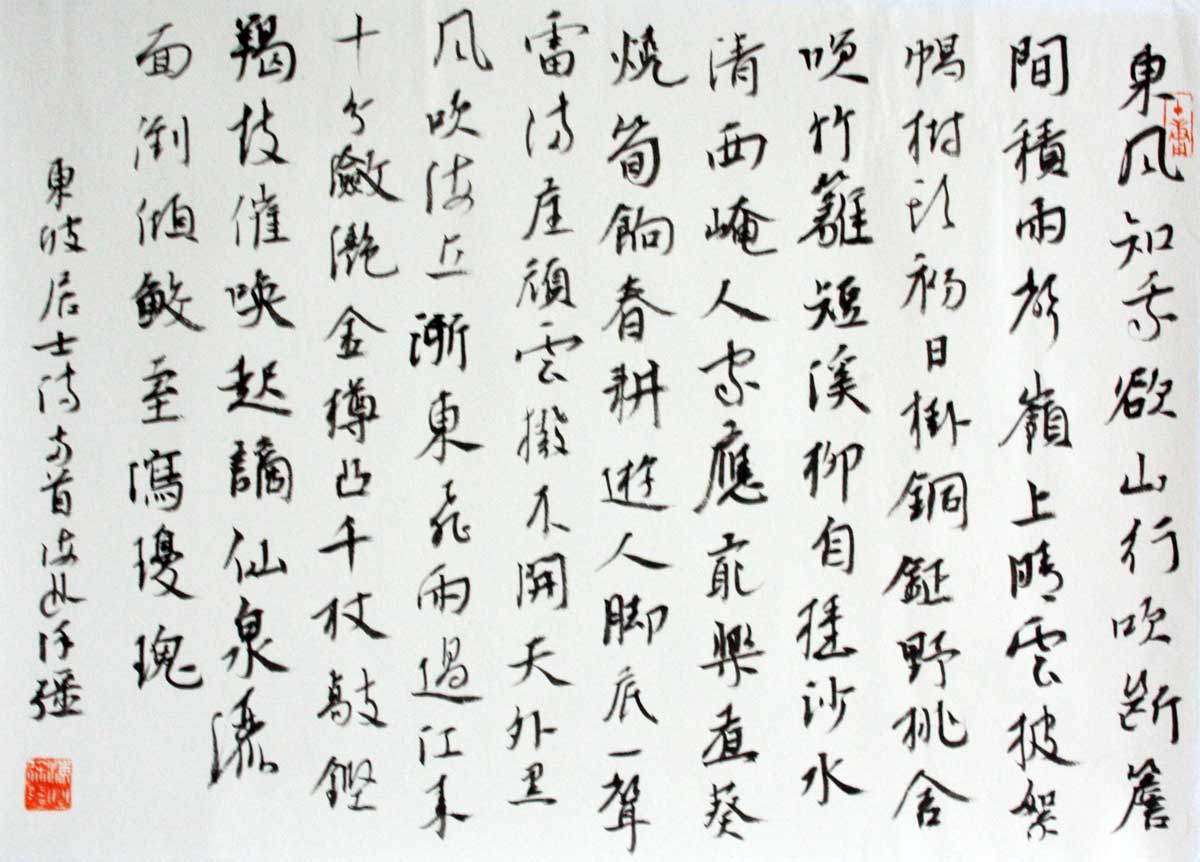 東風知我欲山行吹斷簷
間積雨聲嶺上晴雲披絮
帽樹頭初日掛銅鉦野桃含
咲竹籬短溪柳自搖沙水
清西崦人家應最樂煮葵
燒筍餉春耕遊人腳底一聲
雷滿座頑雲撥不開天外黑
風吹海立浙東飛雨過江來
十分瀲灧金樽凸千杖敲鏗
羯鼓催喚起謫仙泉灑
面倒傾鮫室瀉瓊瑰
東坡居士詩兩首